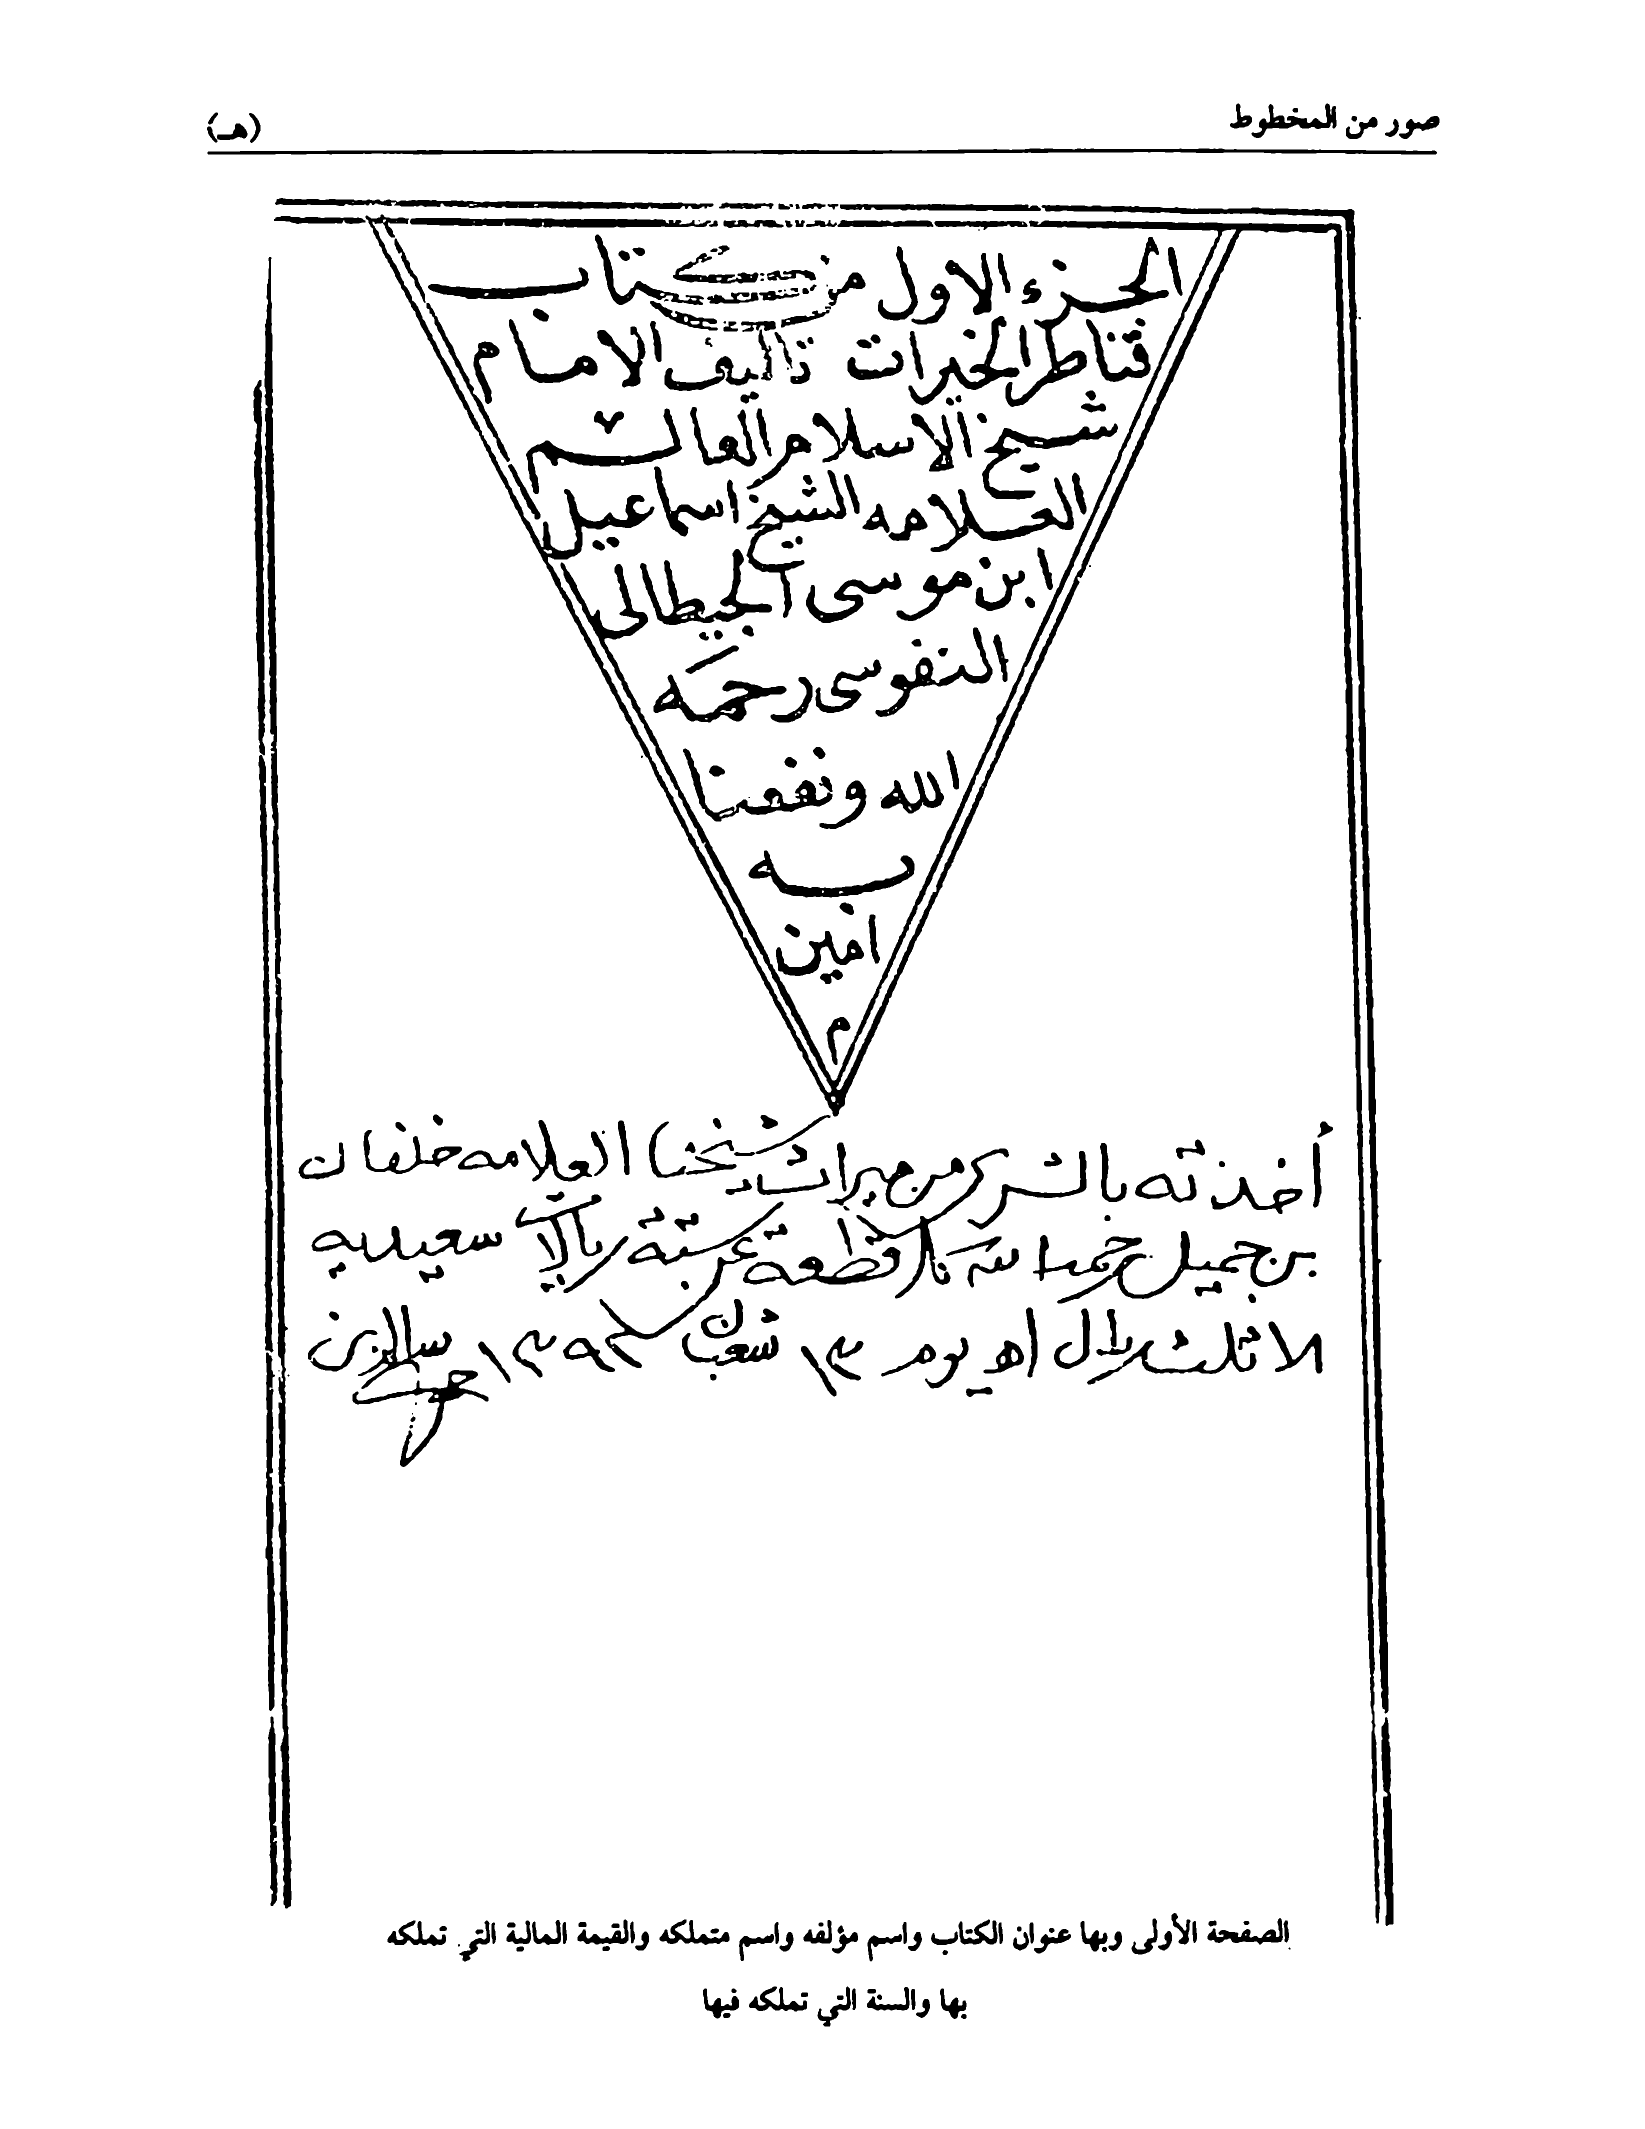 صور من المخطوط
(هـ)
الجزء الاول من كتاب
قناطر الخيرات تاليف الامام
شيخ الاسلام العالم
العلامه الشيخ اسماعيل
ابن موسى الجيطالى
النفوسى رحمه
الله ونفعنا
به
امين
م
أخذته بالشرى من ميراث شيخنا العلامه خلفان
بن جميل رحمه الله قطعة ريالات سعيديه
الا ثلث ريال اه يوم ١٣ شعبان ١٣٩٣ سالم بن
الصفحة الأولى وبها عنوان الكتاب واسم مؤلفه واسم متملكه والقيمة المالية التي تملكه
بها والسنة التي تملكه فيها